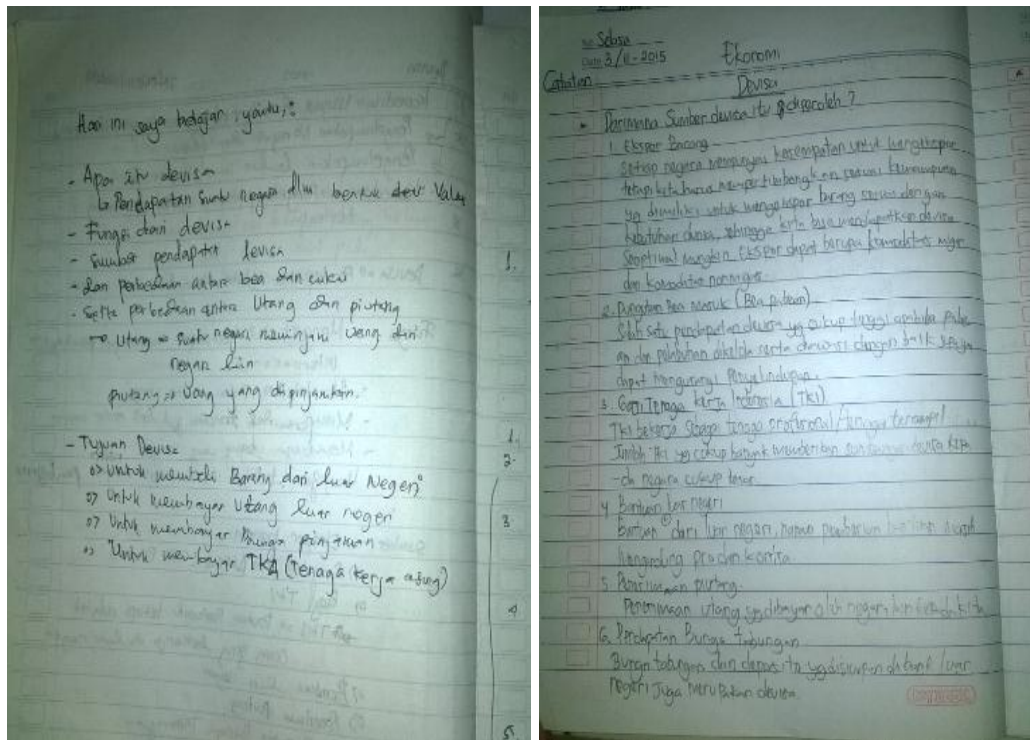 Hari ini saya belajar, yaitu, :
- Apa itu devisa
↳ Pendapatan suatu negara dlm bentuk Valas
- Fungsi dari devisa
- Sumber pendapatan devisa
- dan perbedaan antara bea dan cukai
- serta perbedaan antara Utang dan piutang
→ Utang = suatu negara meminjam uang dari
negara lain
piutang => uang yang dipinjamkan.
- Tujuan Devisa
=> Untuk membeli Barang dari luar Negeri
=> Untuk membayar Utang luar negeri
=> Untuk membayar Bunga pinjaman
=> Untuk membayar TKA (tenaga kerja asing)
1.
1.
2.
3
4
5.
No: Selasa
Date 3/11-2015
Ekonomi
Catatan
Devisa
Darimana Sumber devisa itu diperoleh ?
1. Ekspor Barang
Setiap negara mempunyai kesempatan untuk mengekspor
tetapi kita harus mempertimbangkan sesuai kemampuan
yg dimiliki untuk mengekspor barang sesuai dengan
kebutuhan dunia, sehingga kita bisa mendapatkan devisa
seoptimal mungkin Ekspor dapat berupa komoditas migas
dan komoditas nonmigas.
2. Pungutan Bea masuk (Bea pabean)
Salah satu pendapatan devisa yg cukup tinggi apabila pabe-
an dan pelabuhan dikelola serta diawasi dengan baik
dapat mengurangi Penyelundupan.
3. Gaji Tenaga kerja Indonesia (TKI)
TKI bekerja sbagai tenaga profesional/tenaga terampil
Jumlah TKI yg cukup banyak memberikan devisa kepa
-da negara cukup besar
4 Bantuan luar negeri
bantuan dari luar negeri, namun
5. Penerimaan piutang.
Penerimaan utang yg dibayar oleh negara lain kita
6. Pendapatan Bunga tabungan
Bunga tabungan dan deposito yg disimpan di luar
negeri Juga merupakan devisa.